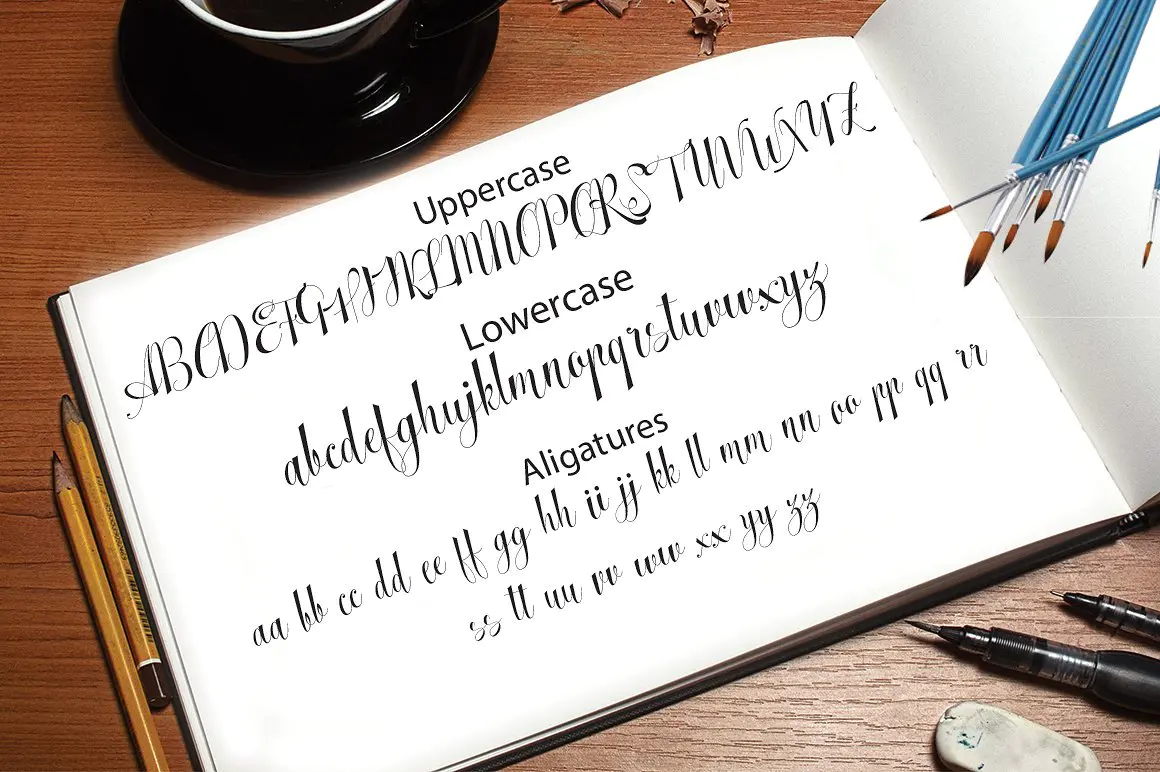 Uppercase
ABCDEFGHIJKLMNOPQRSTUVWXYZ
Lowercase
abcdefghujklmnopqrstuvwxyz
Aligatures
aa bb cc dd ee ff gg hh ii jj kk ll mm nn oo pp qq rr
ss tt uu vv ww xx yy zz